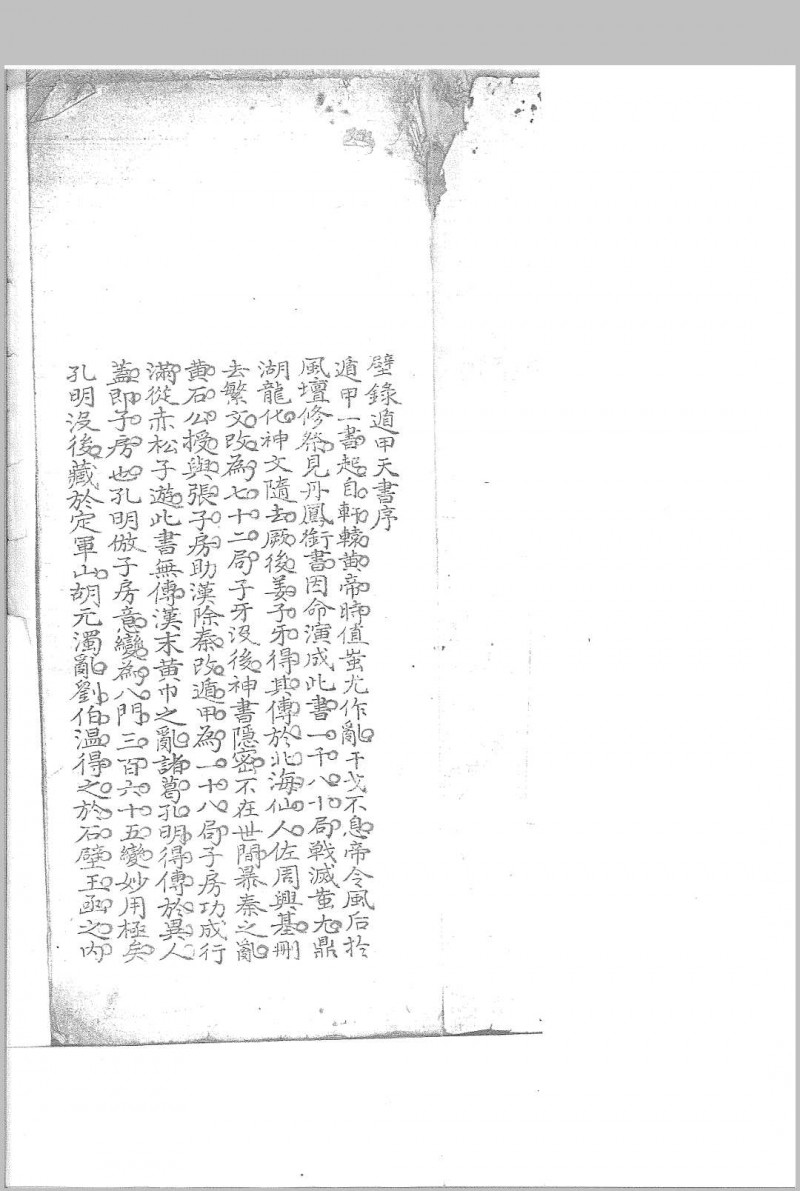 壁錄遁甲天書序
遁甲一書起自軒轅黃帝時值蚩尤作亂干戈不息帝令風后於
風壇修祭見丹鳳銜書因命演成此書一千八十局戰滅蚩尤鼎
湖龍化神文隨去厥後姜子牙得其傳於北海仙人佐周興基刪
去繁文改為七十二局子牙没後神書隱密不在世間暴秦之亂
黃石公授與張子房助漢除秦改遁甲為一十八局子房功成行
滿從赤松子遊此書無傳漢末黃巾之亂諸葛孔明得傳於異人
蓋即子房也孔明倣子房意變為八門三百六十五變妙用極矣
孔明没後藏於定軍山胡元濁亂劉伯温得之於石壁玉函之内